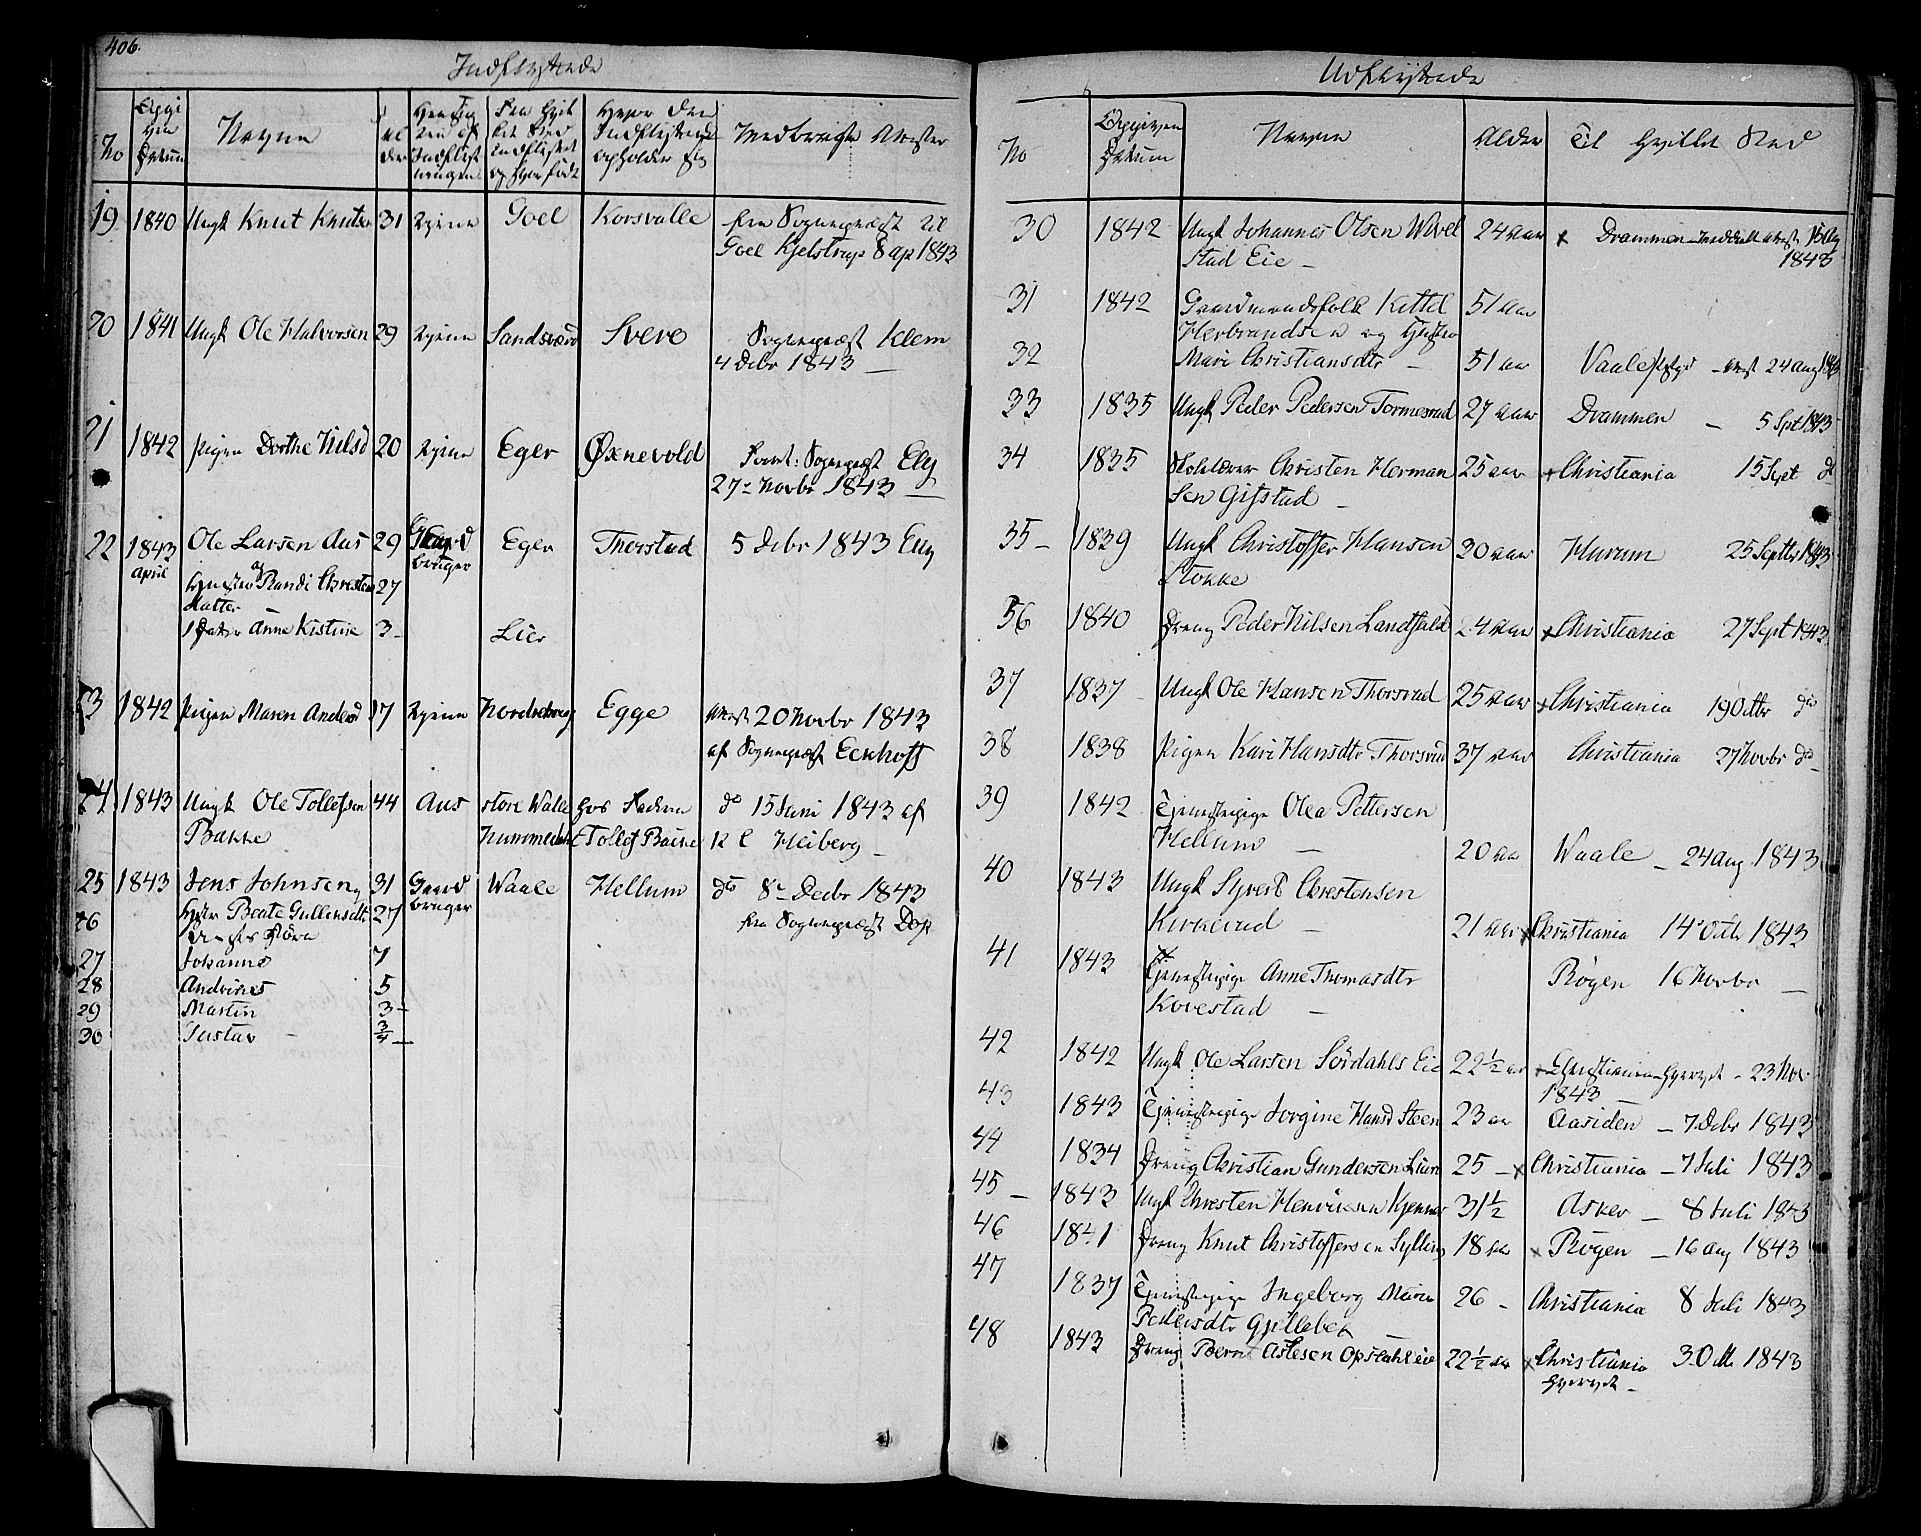 406.
Indflyttede
No
Opgivne Datum
Navne
Alder
Hensigten af Indflytningen
Fra hvilket Sted indflyttet og hvor født
Hvor den Indflyttende opholder sig
Medbragte Attester
19 1840 Ungk Knut Knutsen 31 tjene Goel Korsvalle fra Sognepræst til
Goel Kjelstrup 8 ap 1843
20 1841 Ungk Ole Halvorsen 29 tjene Sandsværd Svere Sognepræst Klem
4 Debr 1843 —
21 1842 Pigen Dorthe Nilsd 20 tjene Eger Øxnevold Sognepræst Ely
27 Novbr 1843 —
22 1843 Ole Larsen Aas 29 Gaard Eger Thorstad 5 Debr 1843 Ely
april bruger
og
Hustro Randi Christen 27
datter
1 Datter Anne Kistine 3 - Lier
23 1842 Pigen Maren Andersd 17 tjene Egge Attest 20 Novbr 1843
af Sognepræst Eckhoff
24 1843 Ungk Ole Tollefsen 44 Aas store Walle hos Faderen do 15 Juni 1843 af
Bakke Nummedal Tollef Bakke Heiberg —
25 1843 Jens Johnsen 31 Gaard Waale Hellum do 8 Decbr 1843
bruger
26 Beate Gulliksdtr 27 fra Sognepræst Dop
Børn
27 Johanne 7
28 Andrines 5
29 Martin 3 -
30 Gustav - 3/4 —
Udflyttede
No
Opgiven Datum
Navne
Alder
Til hvilket Sted
30 1842 Ungk Johannes Olsen Wivel 24 aar x Drammen Attest
stad Eie — 1843
31 1842 Gaardmandsfolk Kittel 51 aar
Herbrandsen og Hustro
32 Mari Christiansdtr — 51 aar Vaale - Attest 24 aug 1843
33 1835 Ungk Peder Pedersen Tormesrud 27 aar Drammen — 5 Spt 1843
34 1835 Christen Herman 25 aar x Christiania 15 Sept do
sen Gifstad —
35 — 1839 Ungk Christoffer Hansen 30 aar Hurum 25 Septbr 1843
Stokke
36 1840 Dreng Peder Nilsen Landfald 24 aar x Christiania 27 Sept 1843
37 1837 Ungk Ole Hansen Thorsrud 25 aar x Christiania 19 Octbr do
38 1838 Pigen Kari Hansdtr Thorsrud 37 aar Christiania 27 Novbr do
39 1842 Tjenestepige Olea Pettersen
Hellum — 20 aar Waale — 24 aug 1843
40 1843 Ungk Syvert Christensen
Kirkerud — 21 aar x Christiania 14 Octb 1843
41 1843 Tjenestepige Anne Thomasdtr Røgen 16 Novbr —
Kovestad —
42 1842 Ungk Ole Larsen Sørdahls Eie 22 1/2 aar x Christiania - 23 Nov
1843 —
43 1843 Tjenestepige Jorgine Hansd Steen 23 aar Aasiden — 7 Debr 1843
44 1834 Dreng Christian Gundersen Lium 25 — x Christiania — 7 Juli 1843
45 — 1843 Ungk Christen Henriksen Kjenner 31 1/2 Asker — 8 Juli 1843
46 1841 Dreng Knut Christoffersen Sylling 18 aar x Røgen — 16 aug 1843
47 1837 Tjenestepige Ingeborg Marie 26 - Christiania 8 Juli 1843
Pedersdtr Gjellebek
48 1843 Dreng Bernt Aslesen Opsahl eie 22 1/2 aar x Christiania 3 Octb 1843